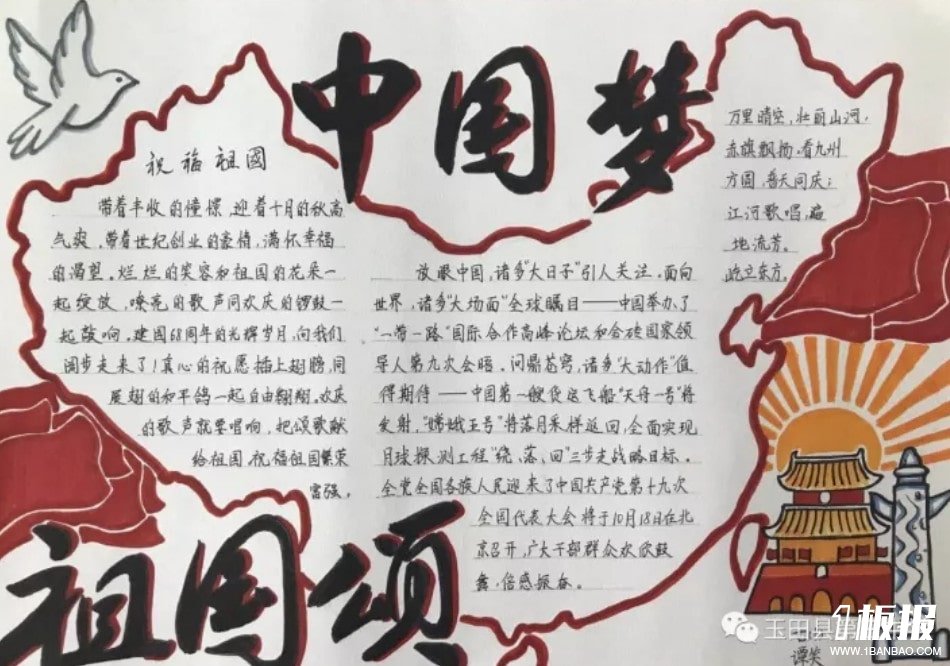 中国梦
祝福祖國
带着丰收的憧憬,迎着十月的秋高
气爽,带着世纪创业的豪情,满怀幸福
的渴望。烂烂的笑容和祖国的花朵一
起绽放,嘹亮的歌声同欢庆的锣鼓一
起敲响。建国68周年的光辉岁月,向我们
阔步走来了!真心的祝愿插上翅膀,同
展翅的和平鸽一起自由翱翔。欢庆
的歌声就要唱响,把颂歌献
给祖国,祝福祖国繁荣
富强。
放眼中国,诸多"大日子"引人关注。面向
世界,诸多"大场面"全球瞩目——中国举办了
"一带一路"国际合作高峰论坛和金砖国家领
导人第九次会晤。问鼎苍穹,诸多"大动作"值
得期待——中国第一艘货运飞船"天舟一号"将
发射,"嫦娥五号"将落月采样返回,全面实现
月球探测工程"绕、落、回"三步走战略目标。
全党全国各族人民迎来了中国共产党第十九次
全国代表大会将于10月18日在北
京召开,广大干部群众欢欣鼓
舞,倍感振奋。
万里晴空,壮丽山河,
赤旗飘扬,看九州
方圆,普天同庆;
江河歌唱,遍
地流芳。
屹立东方。
祖国颂
玉田县第
板报
WWW.1BANBAO.COM